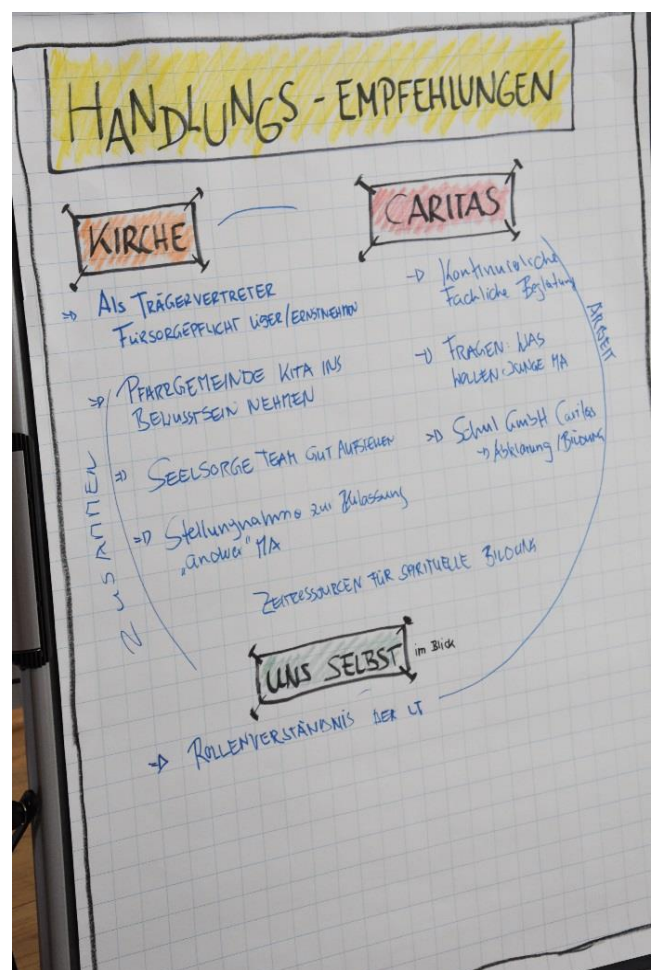 HANDLUNGS - EMPFEHLUNGEN
KIRCHE
⇒ ALS TRÄGERVERTRETER
FÜRSORGEPFLICHT /ERNSTNEHMEN
⇒ PFARRGEMEINDE KITA INS
BEWUSSTSEIN NEHMEN
⇒ SEELSORGE TEAM GUT AUFSTELLEN
⇒ Stellungnahme zur Zulassung
„andrer" MA
CARITAS
⇒ Kontinuierliche
Fachliche Begleitung
⇒ FRAGEN: WAS
WOLLEN JUNGE MA
⇒ Schul GmbH Caritas
⇒ Abklärung /Bildung
ZUSAMMEN
ARBEIT
ZEITRESSOURCEN FÜR SPIRITUELLE BILDUNG
UNS SELBST im Blick
⇒ ROLLENVERSTÄNDNIS DER LT